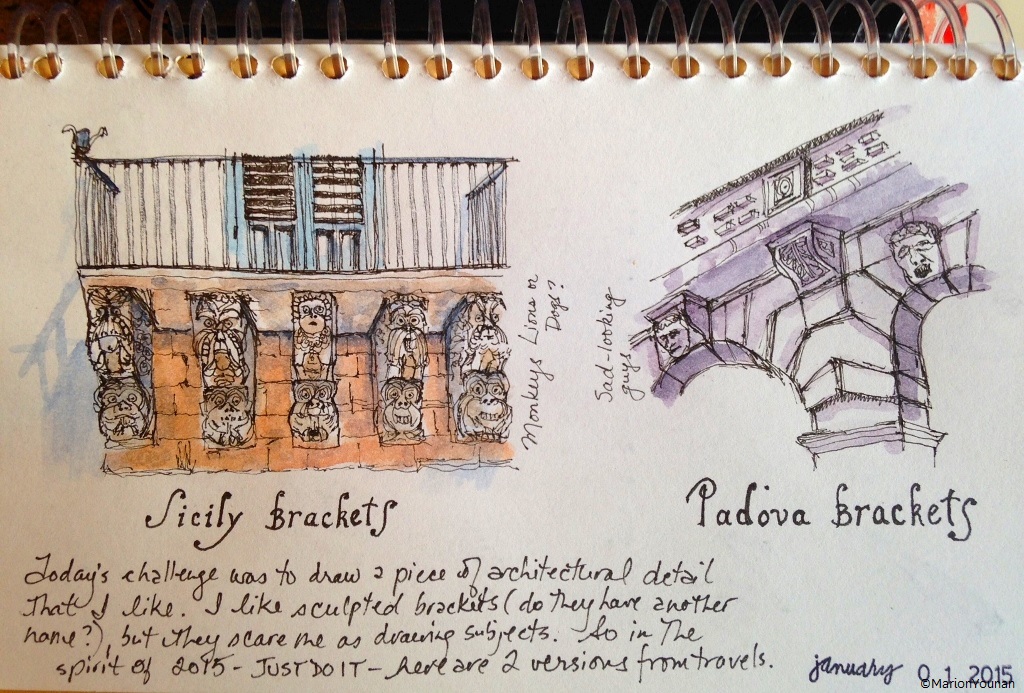 Monkeys Lions or
Dogs?
Sad-looking
guys
Sicily Brackets
Padova Brackets
Today's challenge was to draw a piece of architectural detail
that I like. I like sculpted brackets (do they have another
name?), but they scare me as drawing subjects. So in the
spirit of 2015 - JUST DO IT - here are 2 versions from travels.
january 0 1 2015
©MarionYounan